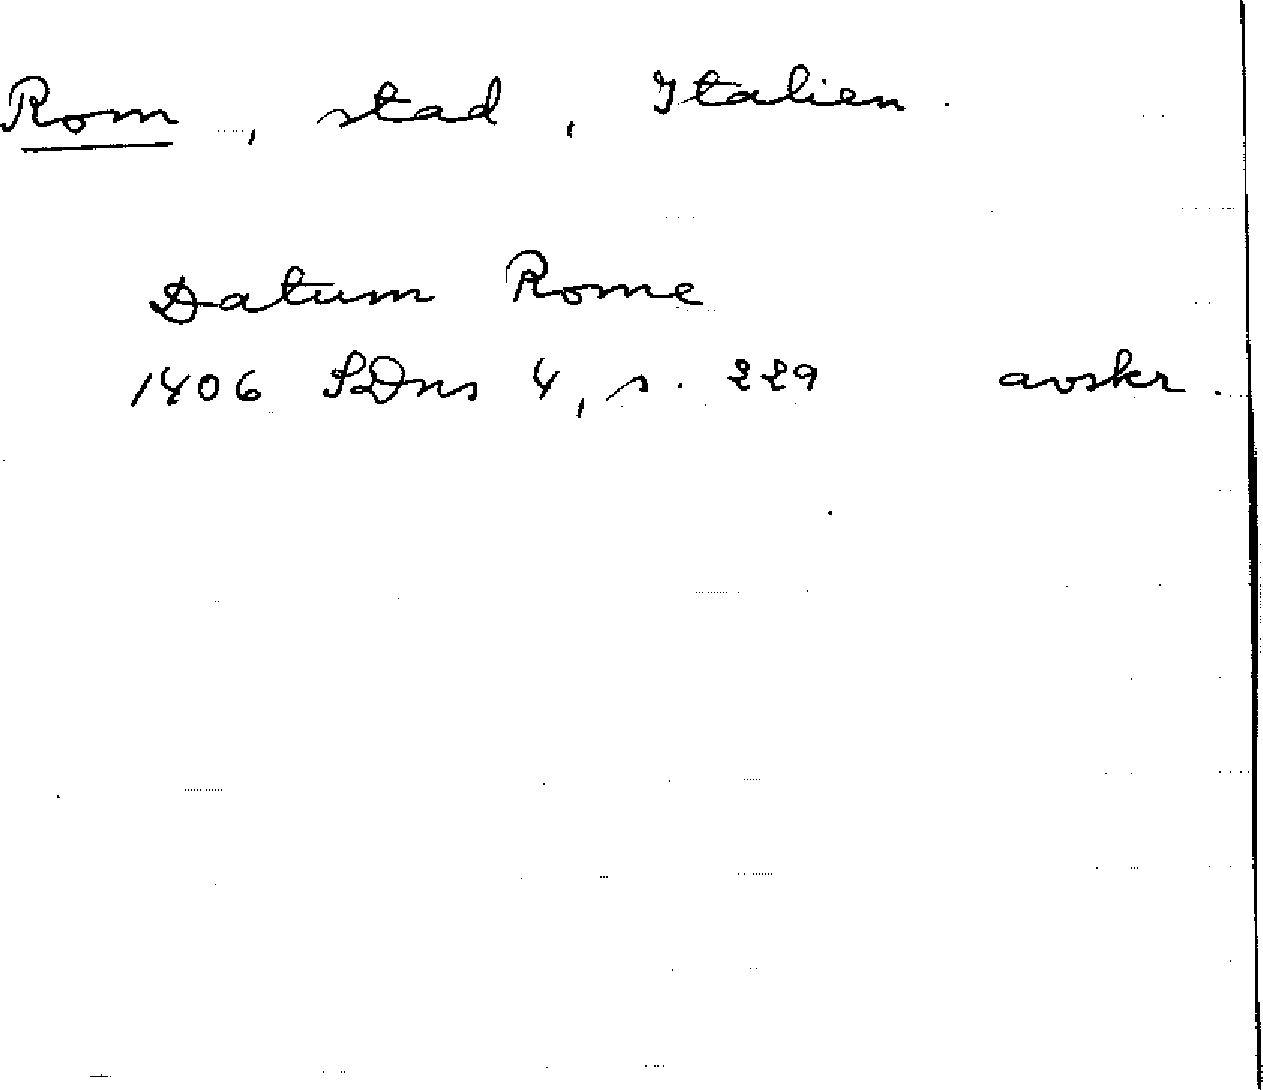 Rom, stad, Italien.
Datum Rome
1406 SDns 4, s. 229 avskr.